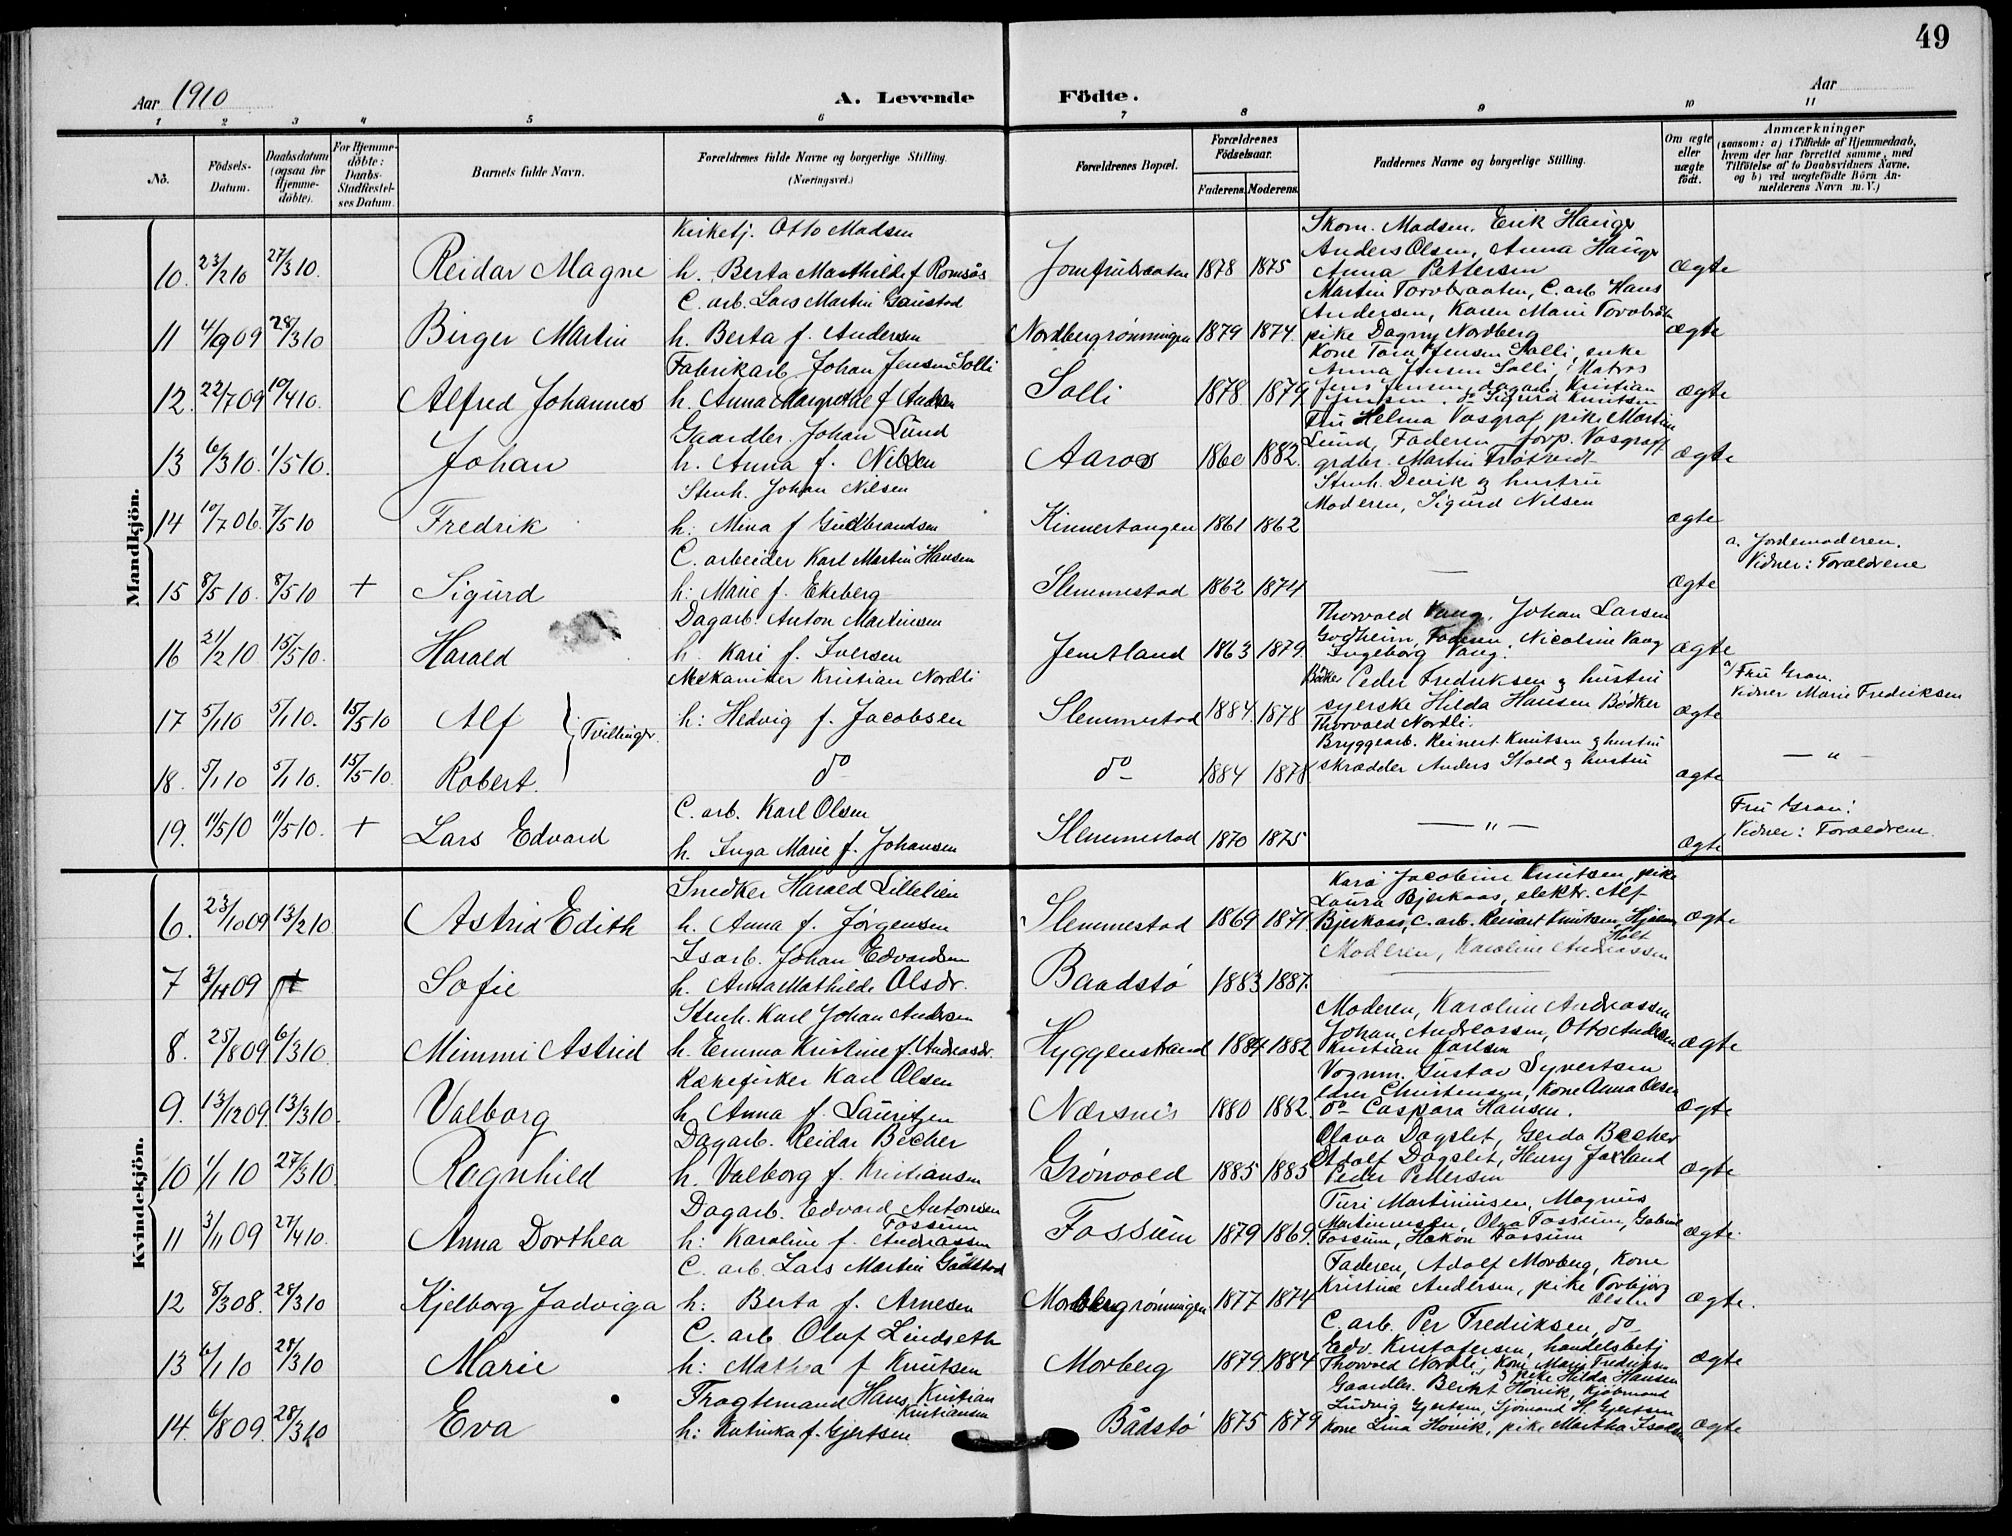 49
Aar 1910
A. Levende Födte.
Aar
1 2 3 4 5 6 7 8 9 10 11
No.
Födsels-Datum.
Daabsdatum (ogsaa for Hjemme-döbte).
For Hjemme-döbte: Daabs-Stadfæstel-ses Datum.
Barnets fulde Navn.
Forældrenes fulde Navne og borgerlige Stilling. (Næringsvei.)
Forældrenes Bopæl.
Forældrenes Födselsaar.
Faderens. Moderens.
Faddernes Navne og borgerlige Stilling.
Om ægte eller uægte födt.
Anmærkninger
(saasom: a) i Tilfælde af Hjemmedaab, hvem der har forrettet samme, med Tilföielse af to Daabsvidners Navne. og b) ved uægtefödte Börn An-melderens Navn m. V.)
Mandkjön.
Kirketj. Otto Madsen
Skom. Madsen. Erik Hauger
Anders Olsen, Anna Hauger
10. 23/2 10 27/3 10. Reidar Magne h. Berta Marthilde f. Romsås Jomfrubraaten 1878 1875 Anna Pettersen ægte
C. arb. Lars Martin Gaustad
Martin Torvbraaten, C. arb. Hans
Andersen, Karen Marie Torvbråt
11 4/9 09 28/3 10 Birger Martin h. Berta f. Andersen Nordbergrønningen 1879 1874. pike Dagny Nordberg ægte
Fabrikarb. Johan Jensen Solli
Kone Tora Jensen Solli, enke
Anna Jensen Solli, Matros
12. 22/7 09 10/4 10. Alfred Johannes h. Anna Margrethe f. Solli 1878 1879 Jens Jensen, dagarb. Kristian ægte
Jensen, do Sigurd Knutsen
Gaardbr. Johan Lund
Fru Helma Vasgraf, pike Martin
Lund, Faderen, forp. Vasgraff
13 6/3 10. 1/5 10. Johan h. Anna f. Nilsen Aaros 1860 1882. grdbr. Martin ægte
Stenh. Johan Nilsen
Stenh. Devik og hustru
Moderen, Sigurd Nilsen
14 10/7 06. 7/5 10 Fredrik h. Mina f. Gudbrandsen Kinnertangen 1861 1862 ægte
C. arbeider Karl Martin Hansen
a. Jordemoderen.
Vidner: Forældrene
15 8/5 10. 8/5 10 + Sigurd h. Marie f. Ekeberg Slemmestad 1862 1874 — ægte
Dagarb. Anton Martinsen
Thorvald Vaug, Johan Larsen
Godheim, Faderen, Nicoline Vaug
16 21/2 10 15/5 10. Harald h. Kari f. Iversen Jemtland 1863 1879. Ingeborg Vaug. ægte
Mekaniker Kristian Nordli
Bødker Peder Fredriksen og hustru
a) Fru Gran.
Vidner Marie Fredriksen
17 5/1 10 5/1 10. 15/5 10 Alf Tvillinger. h: Hedvig f. Jacobsen Slemmestad 1884. 1878 syerske Hilda Hansen Bødker ægte
Thorvald Nordli.
Bryggearb. Reinert Knutsen og hustru
18. 5/1 10 5/1 10. 15/5 10. Robert. do do 1884 1878 skrædder Anders Stold og hustru ægte — " —
C. arb. Karl Olsen
Fru Gran:
Vidner: Forældrene.
19. 11/5 10 11/5 10. + Lars Edvard h. Inga Marie f. Johansen Slemmestad 1870 1875 — " — ægte
Kvindekjön.
Snedker Harald Lillelien
Jacobine Knutsen, pike
Laura Bjerkaas, elektr. Alf
6. 23/10 09 13/2 10 Astrid Edith h. Anna f. Jørgensen Slemmestad 1869 1871. Bjerkaas, C. arb. Reinert Knutsen, Hjalm ægte
Holt
Isarb. Johan Edvardsen
Moderen, Karoline Andreassen
7 09 Sofie h. Anna Mathilde Olsdr. Baadstø 1883 1887.
Stenh. Karl Johan Andersen
Moderen, Karoline Andreassen
Johan Andreassen, Otto Andersen
8. 25/8 09 6/3 10. Mimmi Astrid h. Emma Kristine f. Andreasdr. Hyggenstrand 1884 1882 Kristian Karlsen ægte
Rækefisker Karl Olsen
Vognm. Gustav Syvertsen
Christensen, Kone Anna Olsen
9. 13/12 09. 13/3 10. Valborg h. Anna f. Lauritzen Nærsnes 1880 1882. do Caspara Hansen. ægte
Dagarb. Reidar Becher
Olava Dagslet, Gerda Becher
Adolf Dagslet, Henry Jaxland
10 1/1 10 27/3 10. Ragnhild h. Valborg f. Kristiansen Grønvold 1885 1885 Peder Pettersen ægte
Dagarb. Edvard Antonsen Fossum
Turi Martiniusen, Magnus
Martiniusen, Olga Fossum, Gabriel
11 3/11 09 27/4 10. Anna Dorthea h: Karoline f. Andreassen Fossum 1879 1869. Fossum, Håkon Fossum ægte.
C. arb. Lars Martin
Faderen, Adolf Morberg, Kone
12 8/3 08. 28/3 10 Kjelborg Jadviga h: Berta f. Arnesen 1877 1874 Kristine Andersen, pike Torbjørg Olsen ægte.
C. arb. Olaf Lindseth
C. arb. Per Fredriksen, do
Edv. Kristofersen, handelsbetj.
13 6/1 10 28/3 10 Marie h: Mathea f. Knutsen Morberg 1879. 1884 Thorvald Nordli, Kone Marie Fredriksen ægte
og pike Hilda Hansen
Fragtemand Hans Kristian Kristiansen
Gaardbr. Høvik, Kjøbmand
Ludvig Gjertsen, Sjømand H. Gjertsen
14. 6/8 09. 28/3 10 Eva h: Katinka f. Gjertsen Bådstø 1875 1879 Kone Lina Høvik, pike Martha ægte